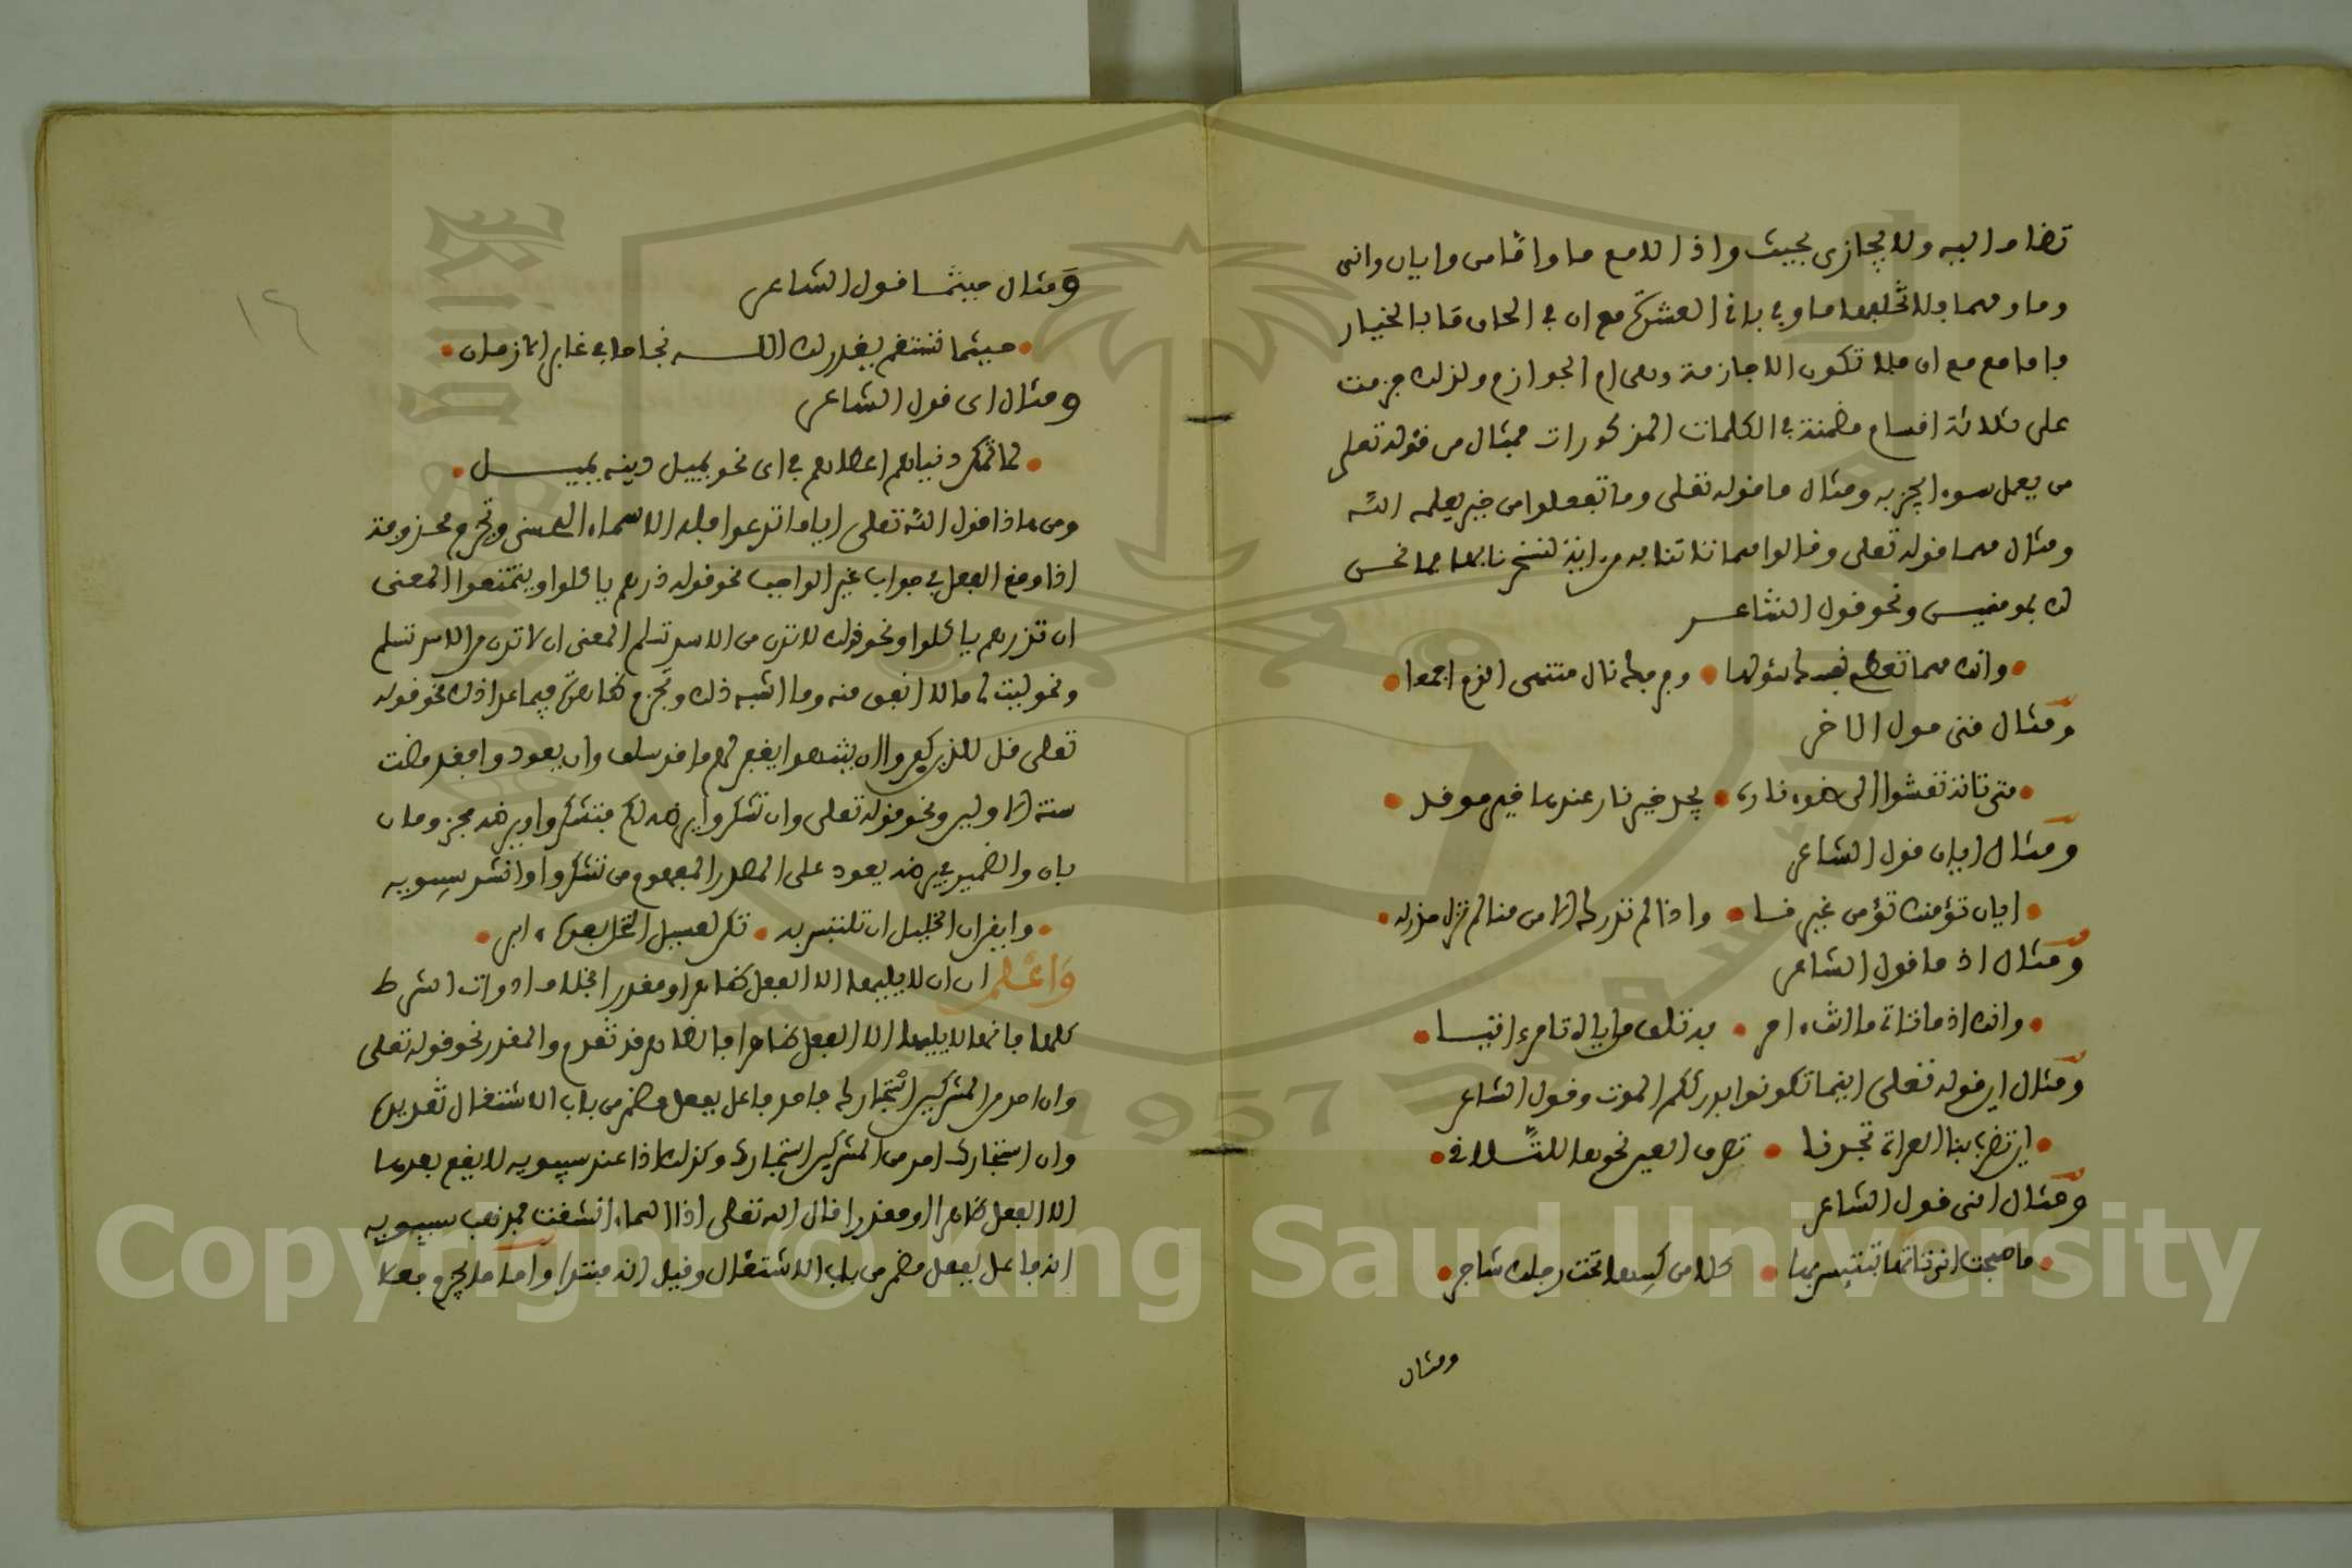 تضاف اليه ولا يجازى بحيث واذ الا مع ما واما من وايان وانى
وما ومهما فلا تلحقها ما وفي باقى العشرة مع ان في الحاق ما بالخيار
فاما مع ان فلا تكون الا جازمة وهى ام الجوازم ولذلك جزمت
على ثلاثة اقسام مضمنة في الكلمات المذكورات فمثال من قوله تعلى
من يعمل سوءا يجز به ومثال ما قوله تعلى وما تفعلوا من خير يعلمه الله
ومثال مهما قوله تعلى وقالوا مهما تاتنا به من اية لتسحرنا بها فما نحن
لك بمومنين ونحو قول الشاعر
وانك مهما تعط بطنك سؤلها وفرجك نال منتهى الذم اجمعا
ومثال متى قول الاخر
متى تاته تعشوا الى ضوء ناره تجد خير نار عندها خير موقد
ومثال ايان قول الشاعر
ايان نؤمنك تؤمن غيرنا واذا لم تدرك الامن منا لم تزل حذرا
ومثال اذ ما قول الشاعر
وانك اذ ما تات ما انت امر به تلف من اياه تامر اتيا
ومثال اين قوله تعلى اينما تكونوا يدرككم الموت وقول الشاعر
اين تضرب بنا العداة تجدنا نصرف العيس نحوها للتلاقى
ومثال انى قول الشاعر
فاصبحت انى تاتها تلتبس بها كلا مركبيها تحت رجلك شاجر
ومثال
١٤
ومثال حيثما قول الشاعر
حيثما تستقم يقدر لك اللـــه نجاحا في غابر الازمان
ومثال اى قول الشاعر
لما تمكن دنياهم اطاعهم في اى نحو يميل دينه يميـــل
ومن هذا قول الله تعلى اياما تدعوا فله الاسماء الحسنى وتجزم محذوفة
اذا وقع الفعل في جواب غير الواجب نحو قوله ذرهم ياكلوا ويتمتعوا المعنى
ان تذرهم ياكلوا ونحو قولك لا تدن من الاسد تسلم المعنى ان لا تدن من الاسد تسلم
ونحو ليت لى مالا انفق منه وما اشبه ذلك وتجزم ظاهرة فيما عدا ذلك نحو قوله
تعلى قل للذين كفروا ان ينتهوا يغفر لهم ما قد سلف وان يعودوا فقد مضت
سنة الاولين ونحو قوله تعلى وان تشكروا يرضه لكم فتشكروا ويرضه مجزومان
بان والضمير في يرضه يعود على المصدر المفهوم من تشكروا وانشد سيبويه
واعلم ان ان لا يليها الا الفعل ظاهرا او مقدرا بخلاف ادوات الشرط
كلها فانها لا يليها الا الفعل ظاهرا فالظاهر قد تقدم والمقدر نحو قوله تعلى
وان احد من المشركين استجارك فاحد فاعل بفعل مضمر من باب الاشتغال تقديره
وان استجارك احد من المشركين استجارك وكذلك اذا عند سيبويه لا يقع بعدها
الا الفعل ظاهرا او مقدرا قال الله تعلى اذا السماء انشقت فمذهب سيبويه
انه فاعل بفعل مضمر من باب الاشتغال وقيل انه مبتدا واما ما يجزم فعلا
Copyright © King Saud University
1957